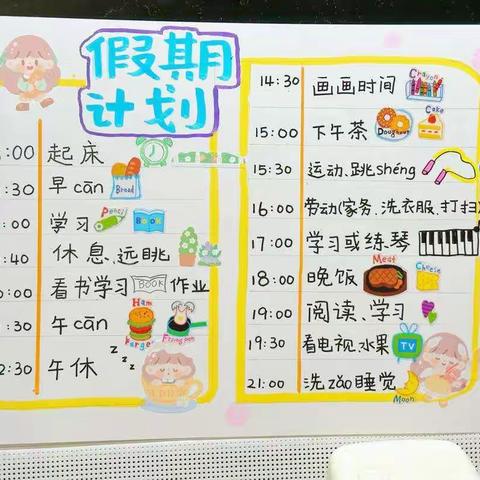 假期
计划
:00 起床
:30 早cān Bread
:00 学习 Pencil BOOK
:40 休息、远眺
:00 看书学习 BOOK 作业
:30 午cān Ham Burger
2:30 午休 z z z
14:30 画画时间 Crayon
15:00 下午茶 Doughnut Cake
15:30 运动、跳shéng
16:00 劳动(家务、洗衣服、打扫)
17:00 学习或练琴
18:00 晚饭 Meat Cheese
19:00 阅读、学习
19:30 看电视、水果 TV
21:00 洗zǎo睡觉 Moon